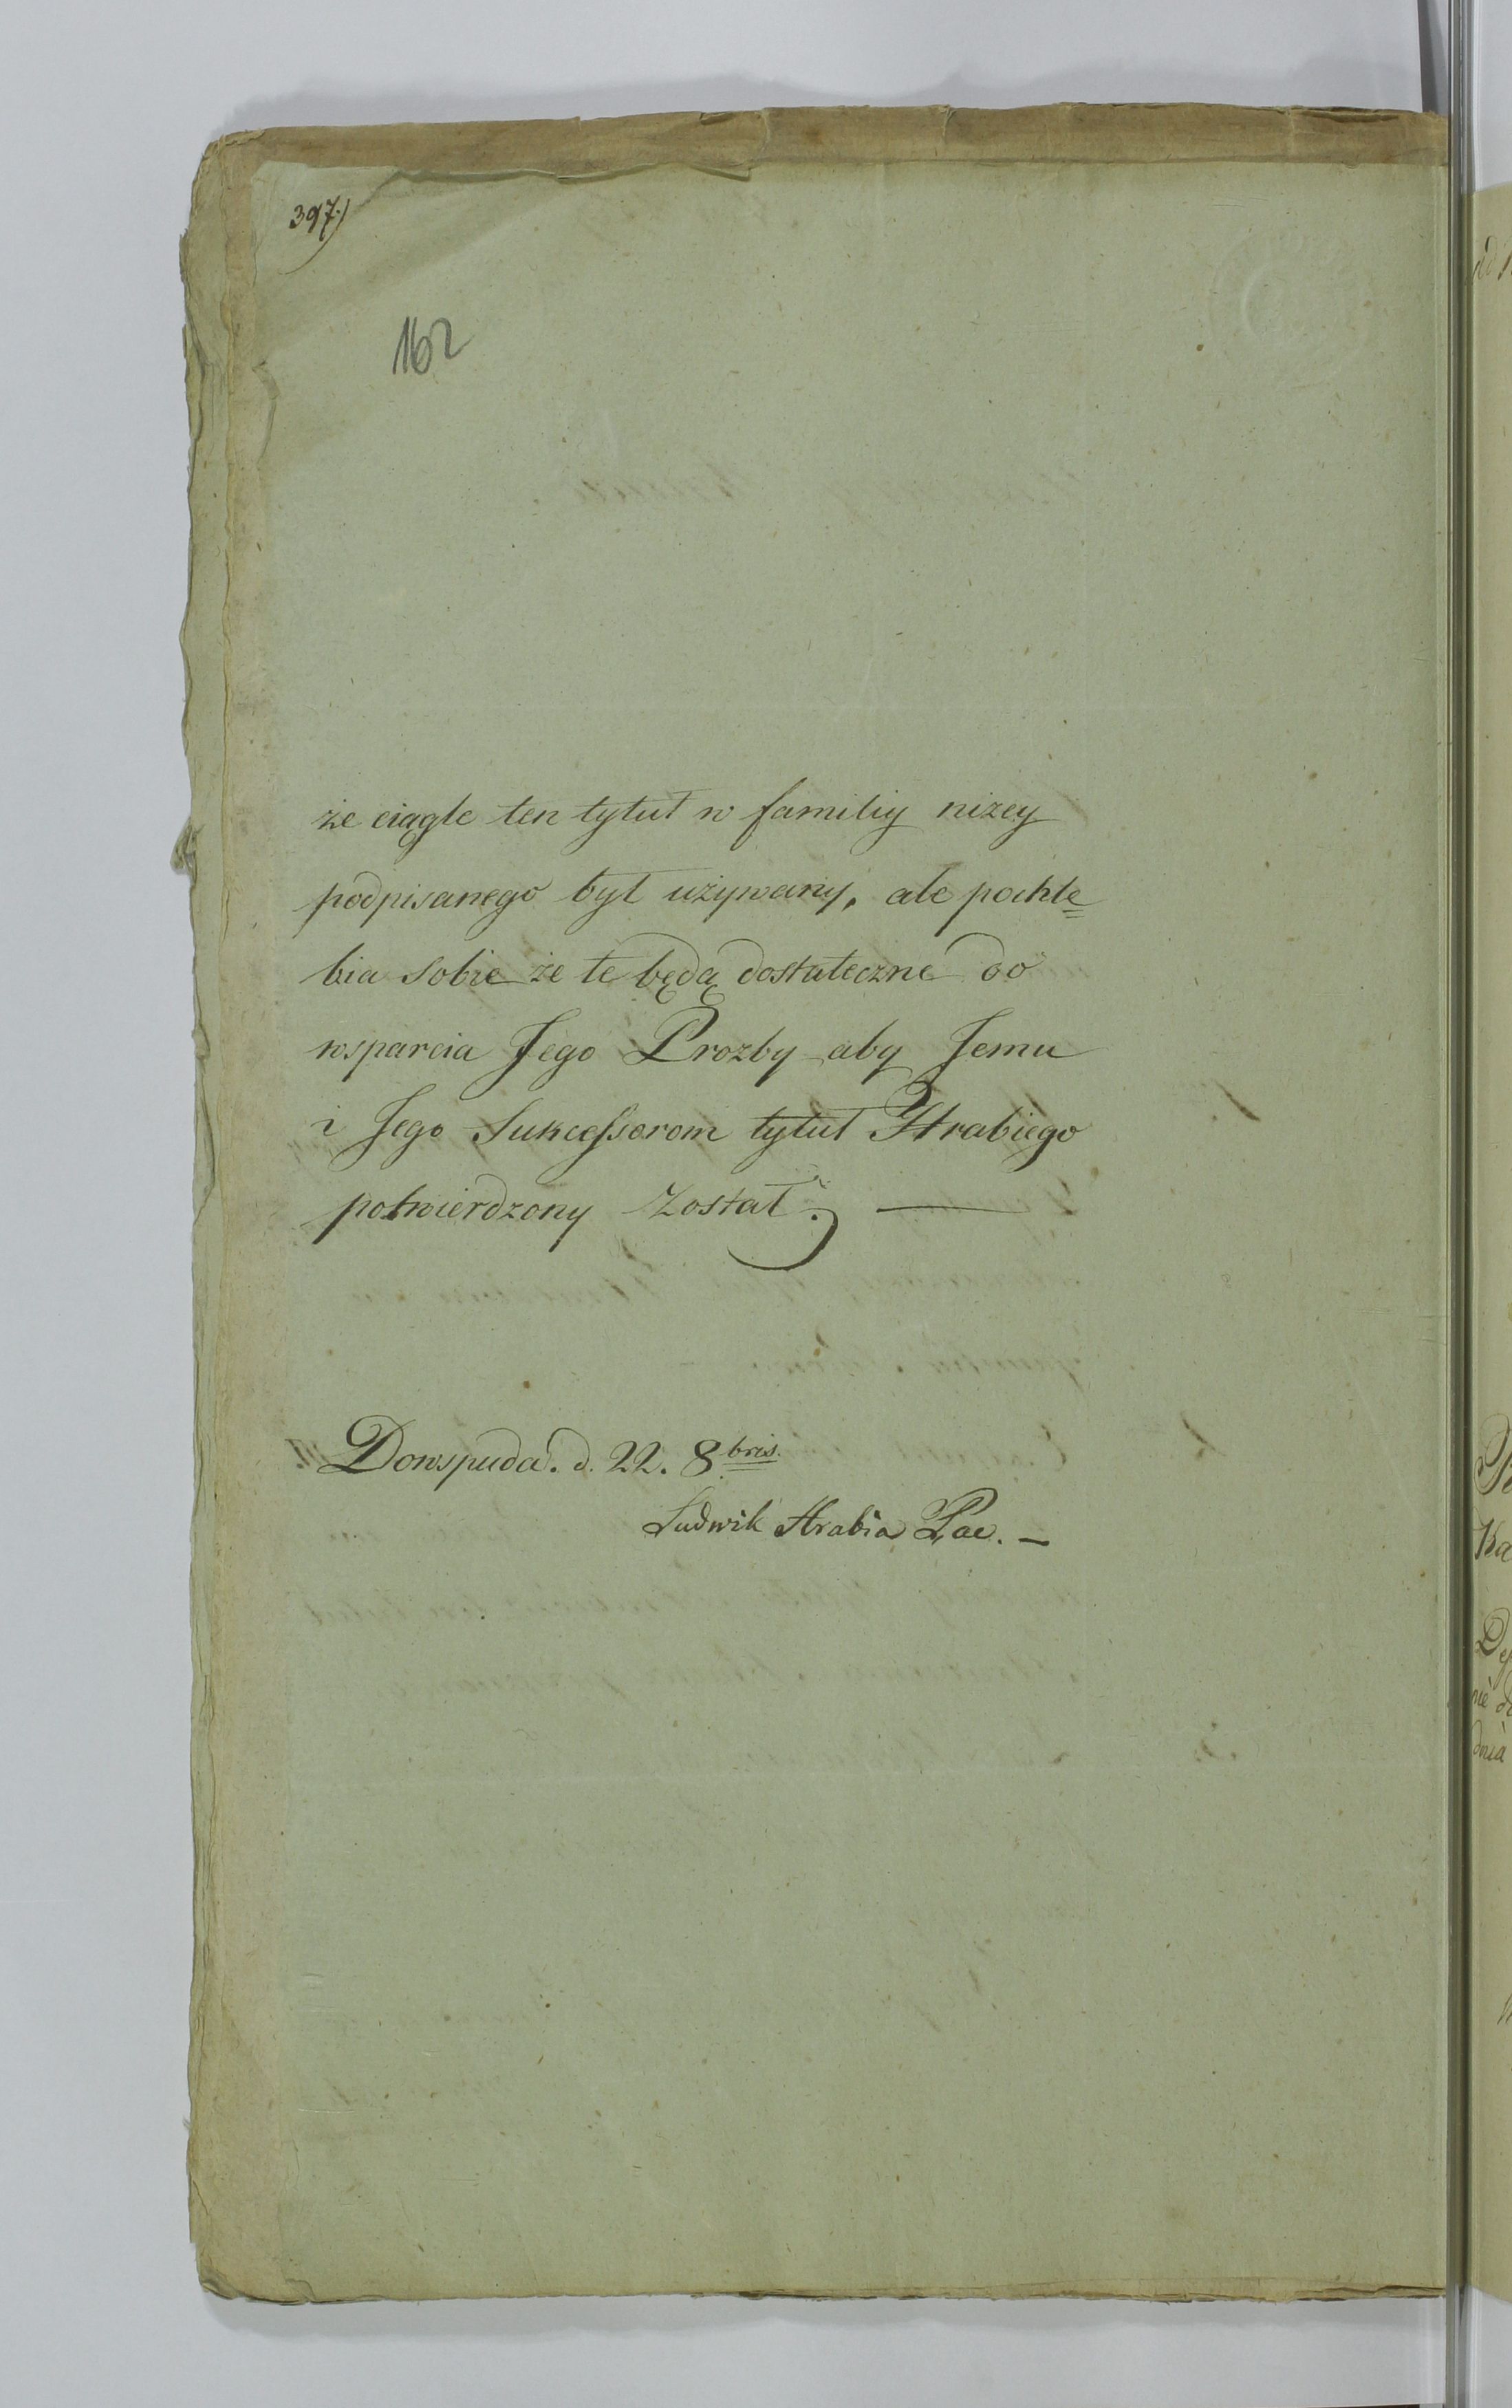 397)
162
że ciągle ten tytuł w familiy niżey
podpisanego był używany, ale pochle=
bia sobie że te będą dostateczne do
wsparcia Jego Prozby aby Jemu
i Jego Sukcessorom tytuł Hrabiego
potwierdzony został. —
Dowspuda. d. 22. 8bris.
Ludwik Hrabia Pac. —